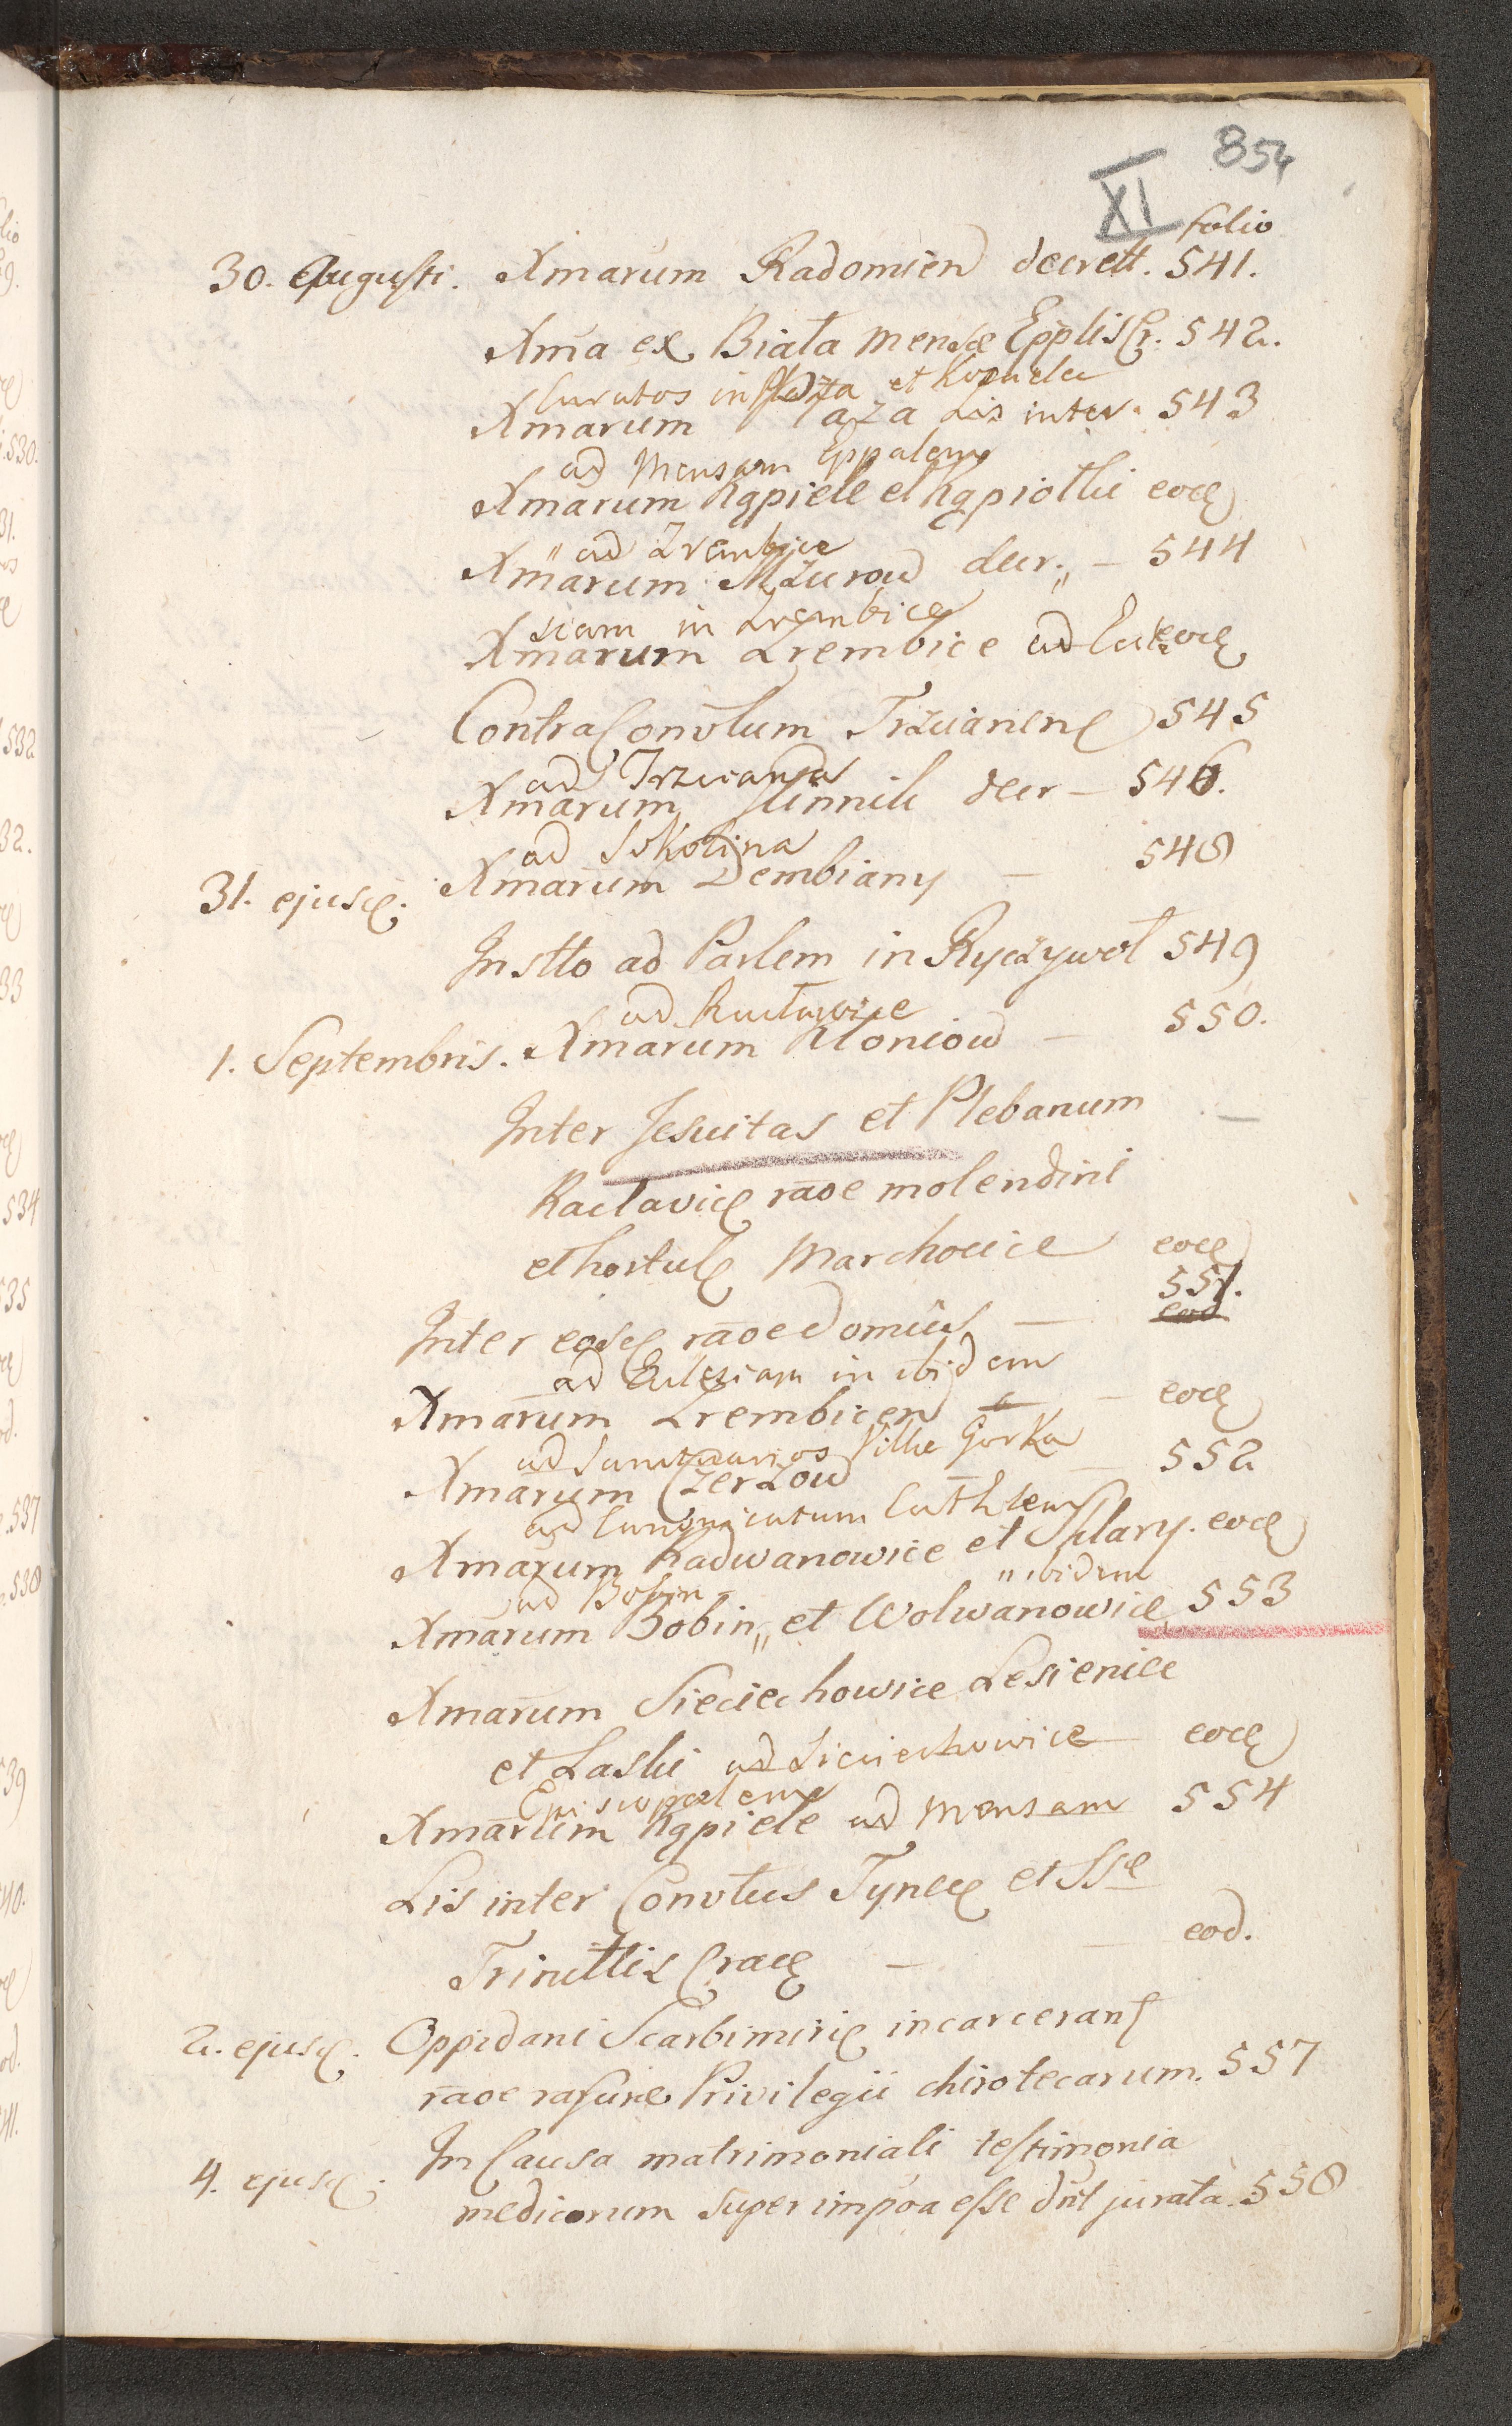 854
XI folio
30. Augusti. Xmarum Radomien decrett. 541.
Xma ex Biała mensæ Epplis Cr. 542.
Curatos in Płaza et Kozudei
Xmarum Płaza Lis inter. 543
ad Mensam Eppalem
Xmarum Kąpiele et Kąpiołki eod
" ad Zrembice
Xmarum Mzurow decr. „ – 544
siam in Zrembice
Xmarum Zrembice ad Eccle eod
Contra Convtum Trzcianen 545
ad Trzciana
Xmarum decr – 546.
ad Sokolina
31. ejusd. Xmarum Dembiany – 548
Instto ad Parlem in Ryczywol 549
ad Racławice
1. Septembris. Xmarum Kłoniow – 550.
Inter Jesuitas et Plebanum –
Raclavic raoe molendini
et hortul Marchocice eod
551.
Inter eosd raoe domus – eod
ad Eclesiam in ibidem
Xmarum Zrembicen – eod
ad Sanctuarios Ville Gorka
Xmarum Czerzow – 552
ad Canonicatum Cathlem
Xmarum Radwanowice et Szklary. eod
ad Bobin " ibidem
Xmarum Bobin „ et Wolwanowice 553
Xmarum Sieciechowice Lesienice
et Laski ad Sieciechowice eod
Episcopalem
Xmarum Kąpiele ad Mensam 554
Lis inter Convtus Tynec et SSæ
Trinittis Crac – – eod.
2. ejusd. Oppidani Scarbimiri incarceran
raoe rasuræ Privilegii chirotecarum. 557
4. ejusd. In Causa matrimoniali testimonia
medicorum super impoa esse dnt jurata. 558